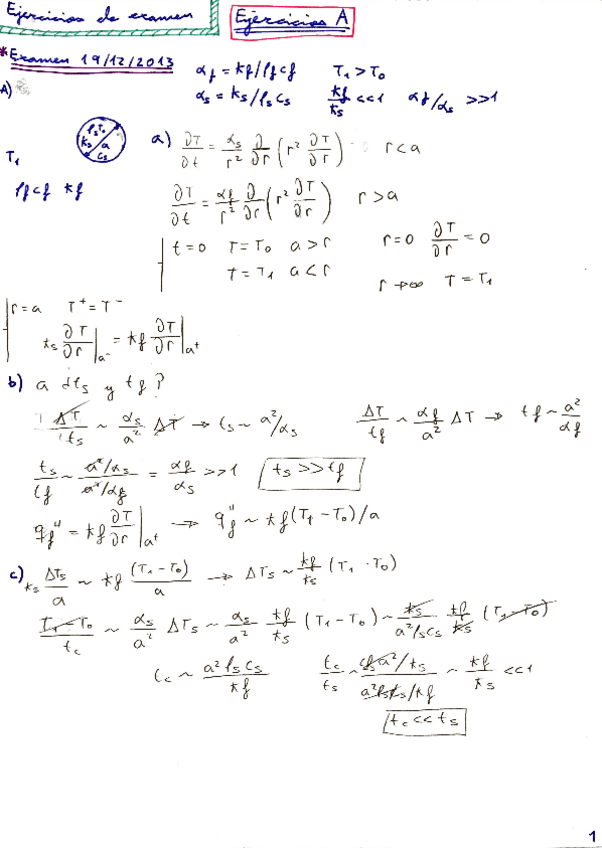 Ejercicios de examen
Ejercicios A
*Examen 19/12/2013
α_f = k_f/ρ_f c_f T₁ > T₀
A)
α_s = k_s/ρ_s c_s k_f/k_s <<1 α_f/α_s >>1
ρ_s T₀
k_s a
c_s
T₁
ρ_f c_f k_f
a) ∂T/∂t = α_s/r² ∂/∂r (r² ∂T/∂r) r<a
∂T/∂t = α_f/r² ∂/∂r (r² ∂T/∂r) r>a
t=0 T=T₀ a>r r=0 ∂T/∂r = 0
T=T₁ a<r r→∞ T=T₁
r=a T⁺=T⁻
k_s ∂T/∂r|a⁻ = k_f ∂T/∂r|a⁺
b) a t_s y t_f ?
ΔT/t_s ~ α_s/a² ΔT → t_s ~ a²/α_s ΔT/t_f ~ α_f/a² ΔT → t_f ~ a²/α_f
t_s/t_f ~ a²/α_s / a²/α_f = α_f/α_s >>1 t_s >> t_f
q_f'' = k_f ∂T/∂r|a⁺ → q_f'' ~ k_f(T₁-T₀)/a
c) k_s ΔT_s/a ~ k_f (T₁-T₀)/a → ΔT_s ~ k_f/k_s (T₁-T₀)
T₁-T₀/t_c ~ α_s/a² ΔT_s ~ α_s/a² k_f/k_s (T₁-T₀) ~ k_s/a²ρ_s c_s k_f/k_s (T₁-T₀)
t_c ~ a² ρ_s c_s/k_f t_c/t_s ~ /k_s / /k_f ~ k_f/k_s <<1
t_c << t_s
1